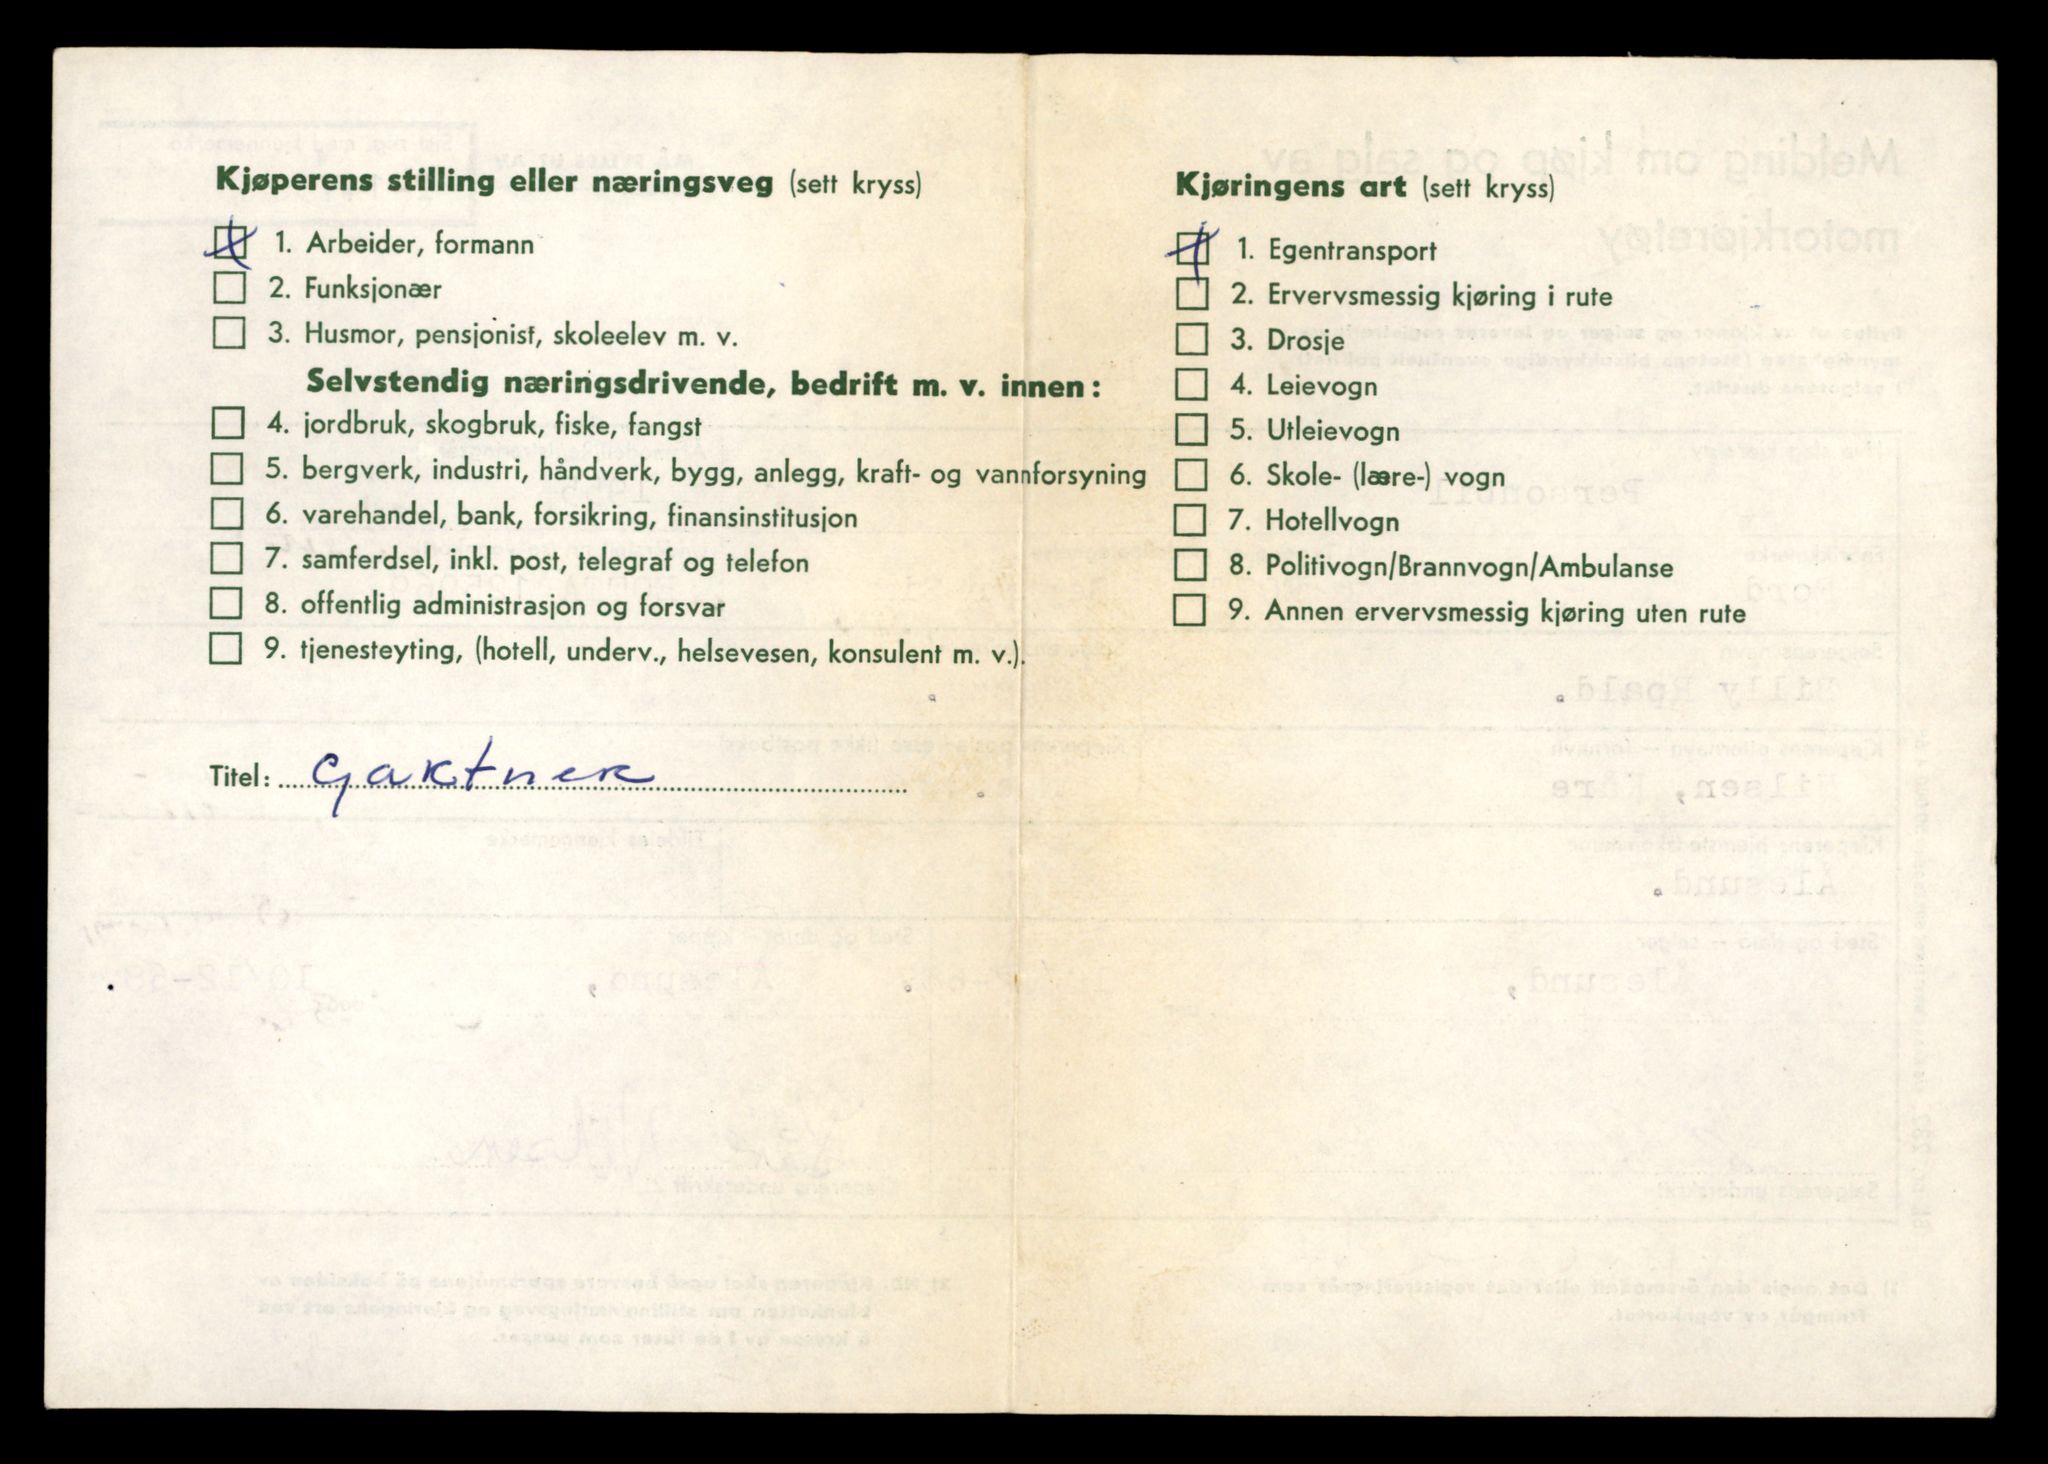 Kjøperens stilling eller næringsveg (sett kryss)
1. Arbeider, formann
2. Funksjonær
3. Husmor, pensjonist, skoleelev m. v.
Selvstendig næringsdrivende, bedrift m. v. innen:
4. jordbruk, skogbruk, fiske, fangst
5. bergverk, industri, håndverk, bygg, anlegg, kraft- og vannforsyning
6. varehandel, bank, forsikring, finansinstitusjon
7. samferdsel, inkl. post, telegraf og telefon
8. offentlig administrasjon og forsvar
9. tjenesteyting, (hotell, underv., helsevesen, konsulent m. v.).
Titel: gartner
Kjøringens art (sett kryss)
1. Egentransport
2. Ervervsmessig kjøring i rute
3. Drosje
4. Leievogn
5. Utleievogn
6. Skole- (lære-) vogn
7. Hotellvogn
8. Politivogn/Brannvogn/Ambulanse
9. Annen ervervsmessig kjøring uten rute